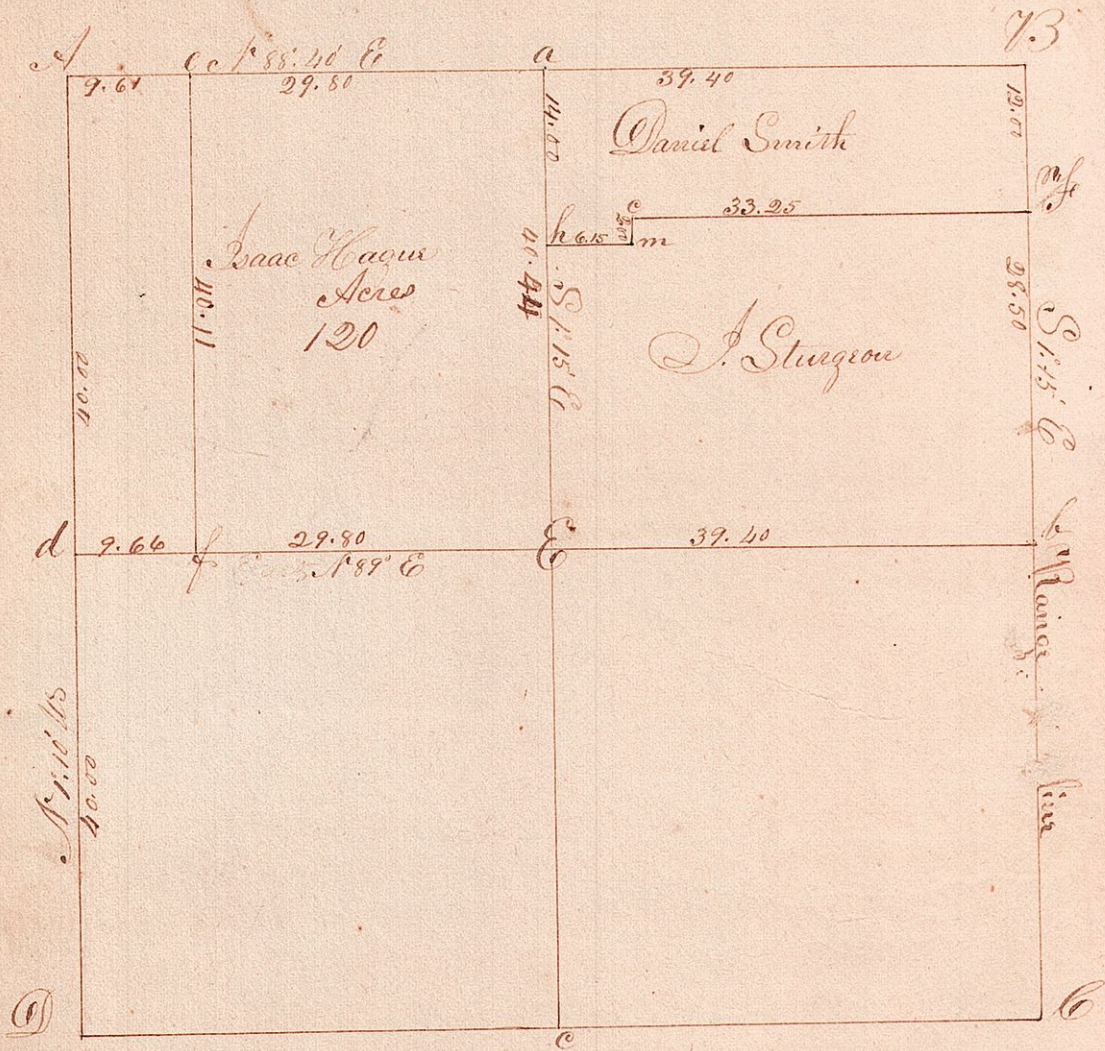 73
A
e
c N 88.40' E
a
9.61
29.80
39.40
14.00
12.00
Daniel Smith
c
33.25
h
6.15
2.00
m
Isaac Hague
Acres
120
40.11
40.44
S 1.15' E
J. Sturgeon
28.50
S 1.15' E
40.00
d
9.66
f
29.80
N 89° E
E
39.40
b
Range
line
N 1.10' W
40.00
D
c
C